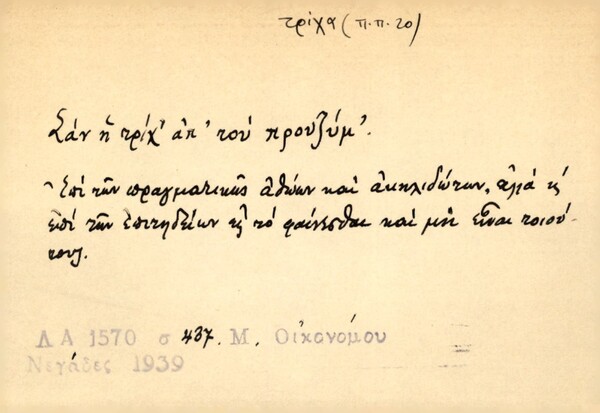 τρίχα (π.π. 20)
Σάν ἡ τρίχ' ἀπ' τοὐ προυζύμ'.
Ἐπί τῶν πραγματικῶς ἀθώων καί ἀκηλιδώτων, ἀλλά κ'
ἐπί τῶν ἐπιτηδείων εἰς τό φαίνεσθαι καί μή εἶναι τοιού-
τους.
ΛΑ 1570 σ 437. Μ. Οἰκονόμου
Νεγάδες 1939